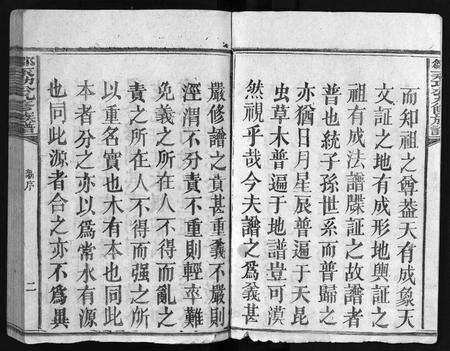 而知祖之尊蓋天有成象天
文証之地有成形地輿証之
祖有成法譜牒証之故譜者
普也統子孫世系而普歸之
亦猶日月星辰普遍于天昆
虫草木普遍于地譜豈可漠
然視乎哉今夫譜之爲義甚
嚴修譜之責甚重義不嚴則
涇渭不分責不重則輕率難
免義之所在人不得而亂之
責之所在人不得而强之所
以重名實也木有本也同此
本者分之亦以爲常水有源
也同此源者合之亦不爲異
序
二